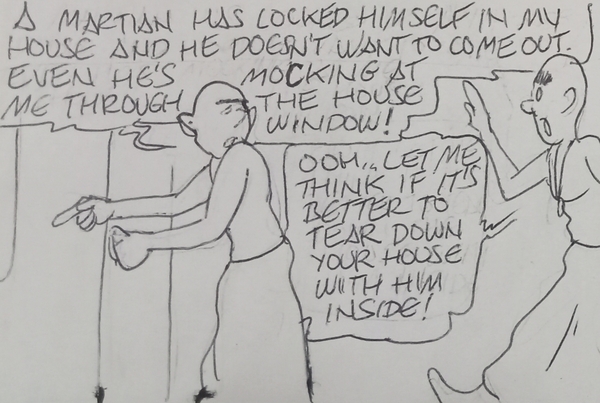 A MARTIAN HAS LOCKED HIMSELF IN MY
HOUSE AND HE DOESN'T WANT TO COME OUT.
EVEN HE'S MOCKING AT
ME THROUGH THE HOUSE
WINDOW!
OOH... LET ME
THINK IF IT'S
BETTER TO
TEAR DOWN
YOUR HOUSE
WITH HIM
INSIDE!